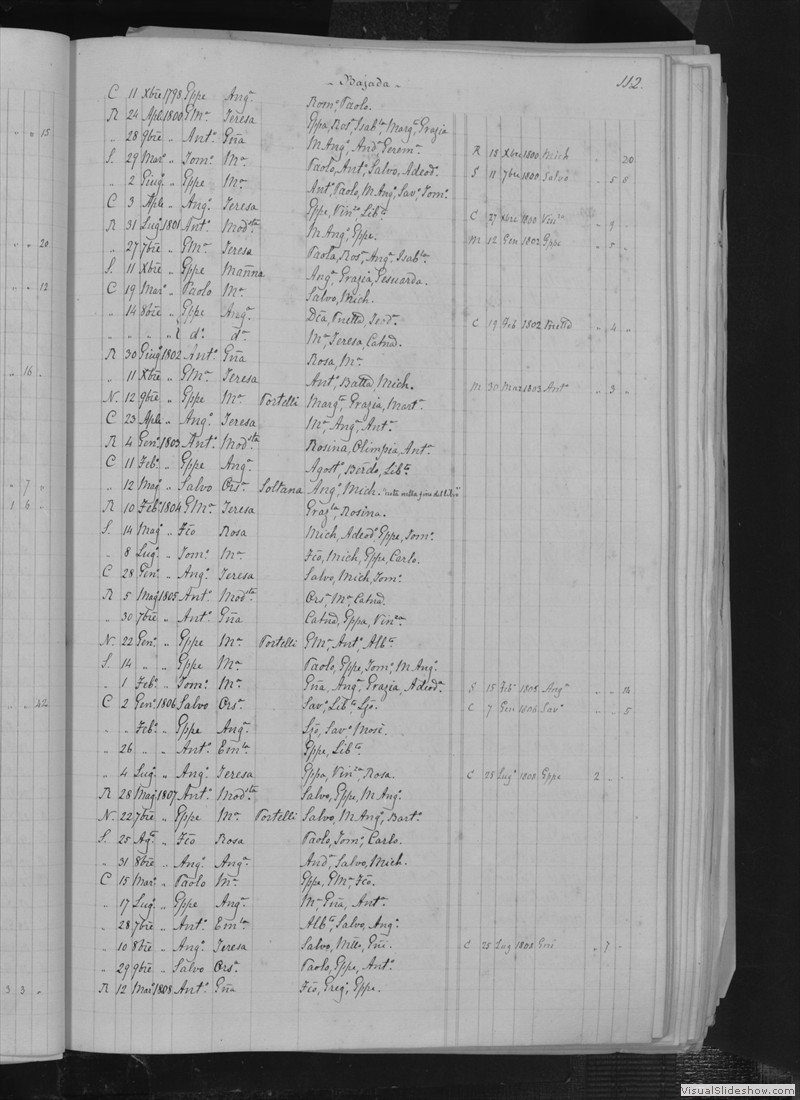 - Bajada -
112.
C 11 Xbre 1798 Gppe Ang.ᵃ Rom.º Paolo.
R 24 Aple 1800 GMª Teresa Gppa, Rosª, Isabˡᵃ, Margª, Grazia
„ „ 15 „ 28 9bre „ Ant.º Gña M Angª, Andª, Gerom.ª R 18 Xbre 1800 Mich „ 20
S. 29 Mar.º „ Tom.º Mª Paolo, Ant.º, Salvo, Adeod.º S 11 7bre 1800 Salvo „ 5 8
„ 2 Giug.º „ Gppe Mª Ant.º, Paolo, M Angº, Savº, Tom.º
C 3 Aple „ Ang.º Teresa Gppe, Vinᶻᵒ, Libª C 27 Xbre 1800 Vinᶻᵒ „ 9 „
R 31 Lug.º 1801 Ant.º Modᵗᵃ M Angº, Gppe. M 12 Gen 1802 Gppe
„ „ 20 „ 27 7bre „ GMª Teresa Paola, Rosª, Angª, Isabˡᵃ
S. 11 Xbre „ Gppe Mañna Angª, Grazia, Gesuarda.
„ „ 12 C 19 Mar.º „ Paolo Mª Salvo, Mich.
„ 14 8bre „ Gppe Angª Dča, Pnetta, Ferdª C 19 Feb 1802 Pnetta „ 4 „
„ „ „ „ d.º d.ª Mª, Teresa, Catnª.
R 30 Giug.º 1802 Ant.º Gña Rosa, Mª
„ 16 „ „ 11 Xbre „ GMª Teresa Ant.º, Batta, Mich. M 30 Mar 1803 Ant.º „ 3 „
N. 12 9bre „ Gppe Mª Portelli Margª, Grazia, Martª
C 23 Aple „ Ang.º Teresa Mª, Angª, Antª
R 4 Gen.º 1803 Ant.º Modᵗᵃ Rosina, Olimpia, Antª
C 11 Feb.º „ Gppe Angª Agostº, Berdo, Libª
„ 7 „ „ 12 Mag.º „ Salvo Orsª Soltana Angº, Mich. nota nella fine del libro
1 6 „ R 10 Feb.º 1804 GMª Teresa Grazˡᵃ, Rosina.
S. 14 Mag.º „ Fčo Rosa Mich, Adeodº, Gppe, Tom.º
„ 8 Lug.º „ Tom.º Mª Fčo, Mich, Gppe, Carlo.
C 28 Gen.º „ Ang.º Teresa Salvo, Mich, Tom.º
R 5 Mag.º 1805 Ant.º Modᵗᵃ Orsª, Mª, Catnª
„ 30 7bre „ Ant.º Gña Catnª, Gppa, Vinᶻᵃ
N. 22 Gen.º „ Gppe Mª Portelli GMª, Ant.º, Albª
S. 14 „ „ Gppe Mª Paolo, Gppe, Tom.º, M Angº
„ 1 Feb.º „ Tom.º Mª Gña, Angª, Grazia, Adeodª S 15 Feb.º 1805 Angª „ „ 14
„ „ 42 C 2 Gen.º 1806 Salvo Orsª Savº, Libª, Ljo. C 7 Gen 1806 Savº „ „ 5
„ „ Feb.º „ Gppe Angª Ljo, Savº, Mosè.
„ 26 „ „ Ant.º Emˡᵃ Gppe, Libª
„ 4 Lug.º „ Ang.º Teresa Gppa, Vinᶻᵃ, Rosa. C 25 Lug.º 1808 Gppe 2 „ „
R 28 Mag.º 1807 Ant.º Modᵗᵃ Salvo, Gppe, M Angº
N. 22 7bre „ Gppe Mª Portelli Salvo, M Angº, Bartº
S. 25 Agº „ Fčo Rosa Paolo, Tom.º, Carlo.
„ 31 8bre „ Ang.º Angª Andª, Salvo, Mich.
C 15 Mar.º „ Paolo Mª Gppe, GMª, Fčo.
„ 17 Lug.º „ Gppe Angª Mª, Gña, Antª
„ 28 7bre „ Ant.º Emˡᵃ Albª, Salvo, Angº
„ 10 8bre „ Ang.º Teresa Salvo, C 25 Lug 1808 „ 7 „
„ 29 9bre „ Salvo Orsª Paolo, Gppe, Ant.º
3 3 „ R 12 Mar.º 1808 Ant.º Gña Fčo, Gregº, Gppe.
VisualSlideshow.com